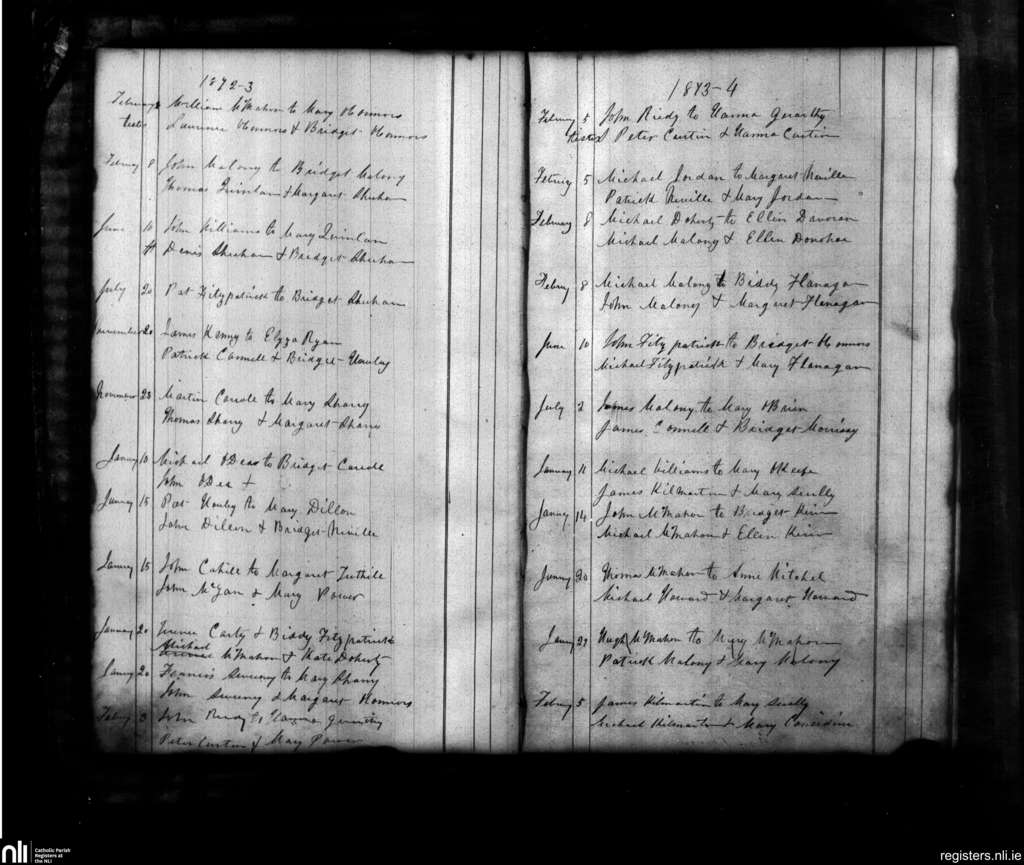 1872-3
February William McMahon to Mary Honnors
testes Laurence Honnors & Bridget Honnors
February 8 John Malony to Bridget Malony
Thomas Quinlan & Margaret Shehan
June 10 John Williams to Mary Quinlan
Denis Sheehan & Bridget Sheehan
July 20 Pat Fitzpatrick to Bridget Sheehan
20 James Kenny to Ryan
Patrick Connell & Bridget
28 Martin to Mary
Thomas & Margaret
January 10 Michael ODea to Bridget
John ODea +
January 15 Pat to Mary Dillon
John Dillon & Bridget Neville
January 15 John Cahill to Margaret Tuthile
John & Mary Power
January 20 Carty & Biddy Fitzpatrick
Michael
McMahon & Kate Doherty
January 20 Francis Sweeney to Mary
John Sweeney & Margaret Honnors
February 3 John to Hanna
Peter Curtin & Mary Power
1873-4
February 5 John to Hanna
testes Peter Curtin & Hanna Curtin
February 5 Michael Jordan to Margaret Neville
Patrick Neville & Mary Jordan
February 8 Michael Doherty to Ellen Davoran
Michael Malony & Ellen Donohoe
February 8 Michael Malony to Biddy Flanagan
John Malony & Margaret Flanagan
June 10 John Fitzpatrick to Bridget Honnors
Michael Fitzpatrick & Mary Flanagan
July 2 James Malony to Mary OBrien
James Connell & Bridget Morrissy
January 11 Michael Williams to Mary OKeefe
James Kilmartin & Mary Scully
January 14 John McMahon to Bridget
Michael McMahon & Ellen
January 20 Thomas McMahon to Anne Mitchel
Michael Howard & Margaret Howard
January 29 Hugh McMahon to Mary McMahon
Patrick Malony & Mary Malony
February 5 James Kilmartin to Mary Scully
Michael Kilmartin & Mary Considine
nli Catholic Parish
Registers at
the NLI
registers.nli.ie